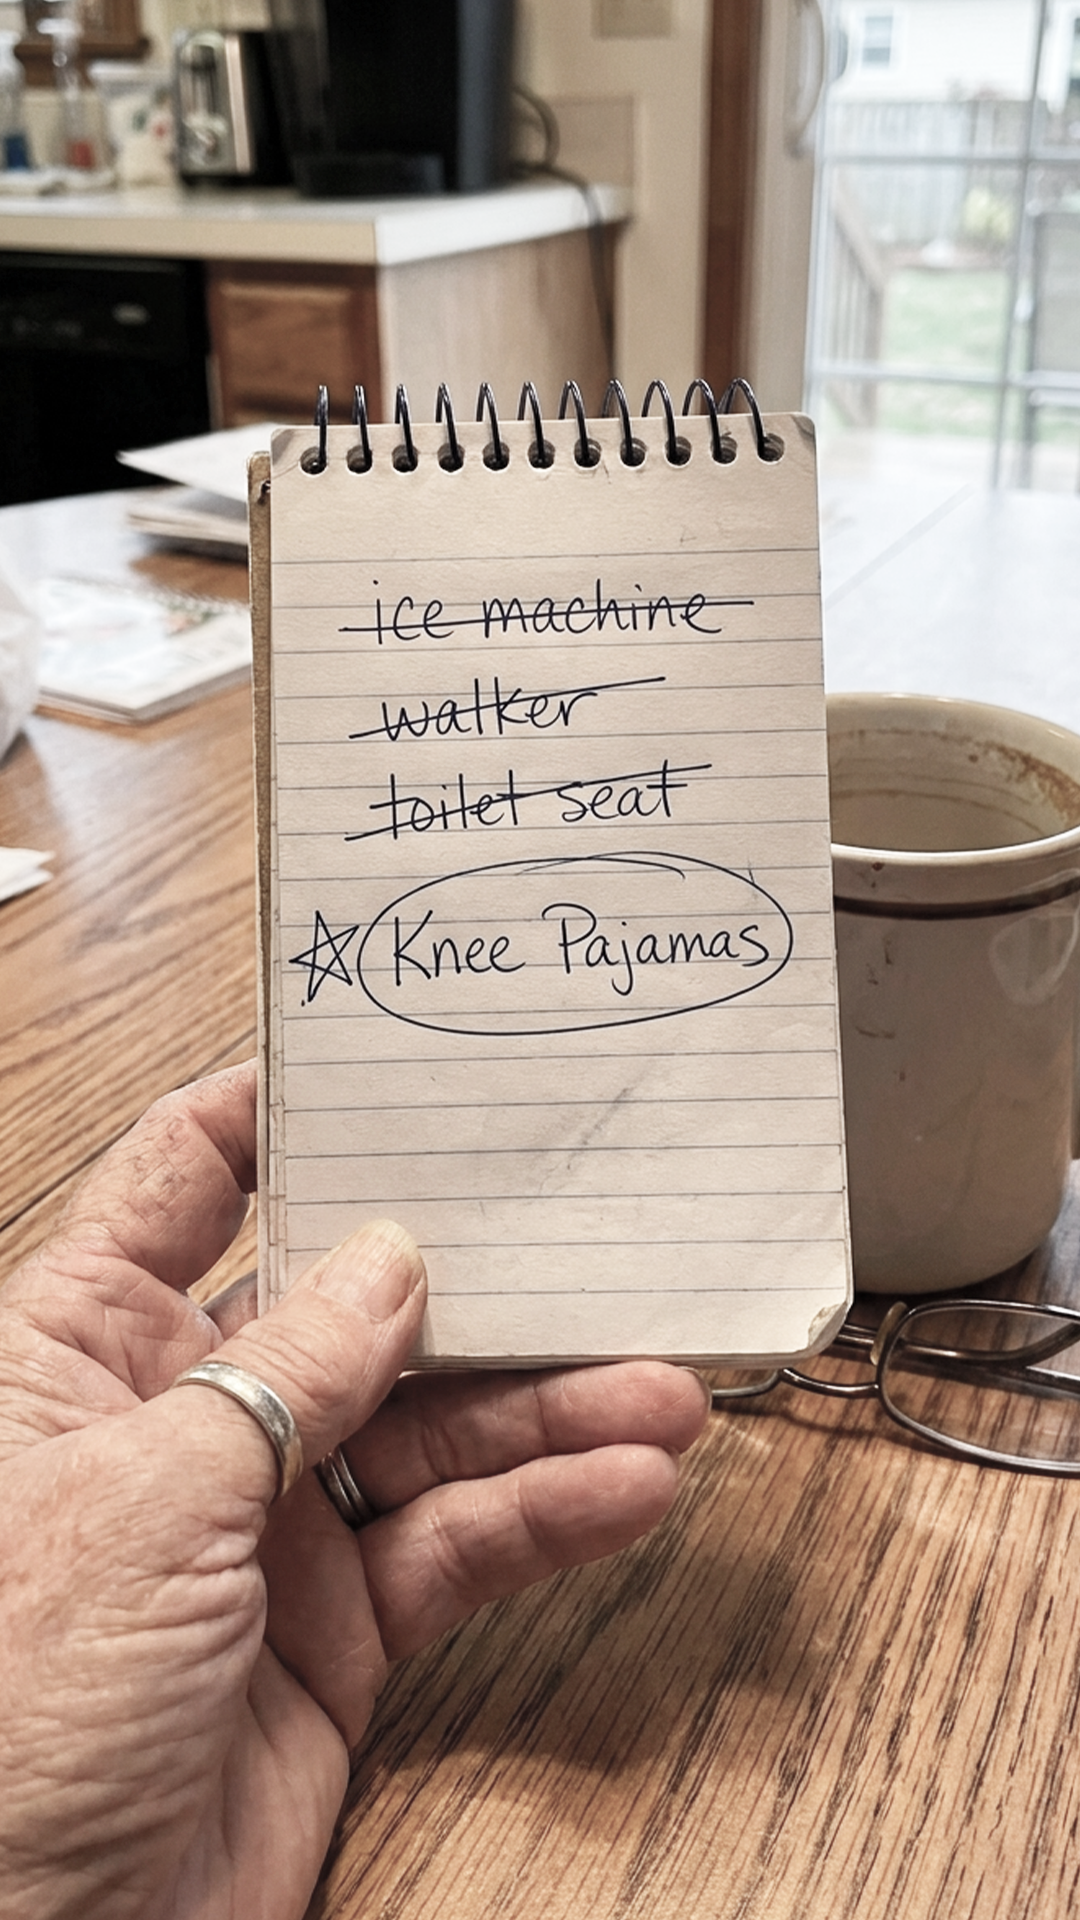 ice machine
walker
toilet seat
Knee Pajamas